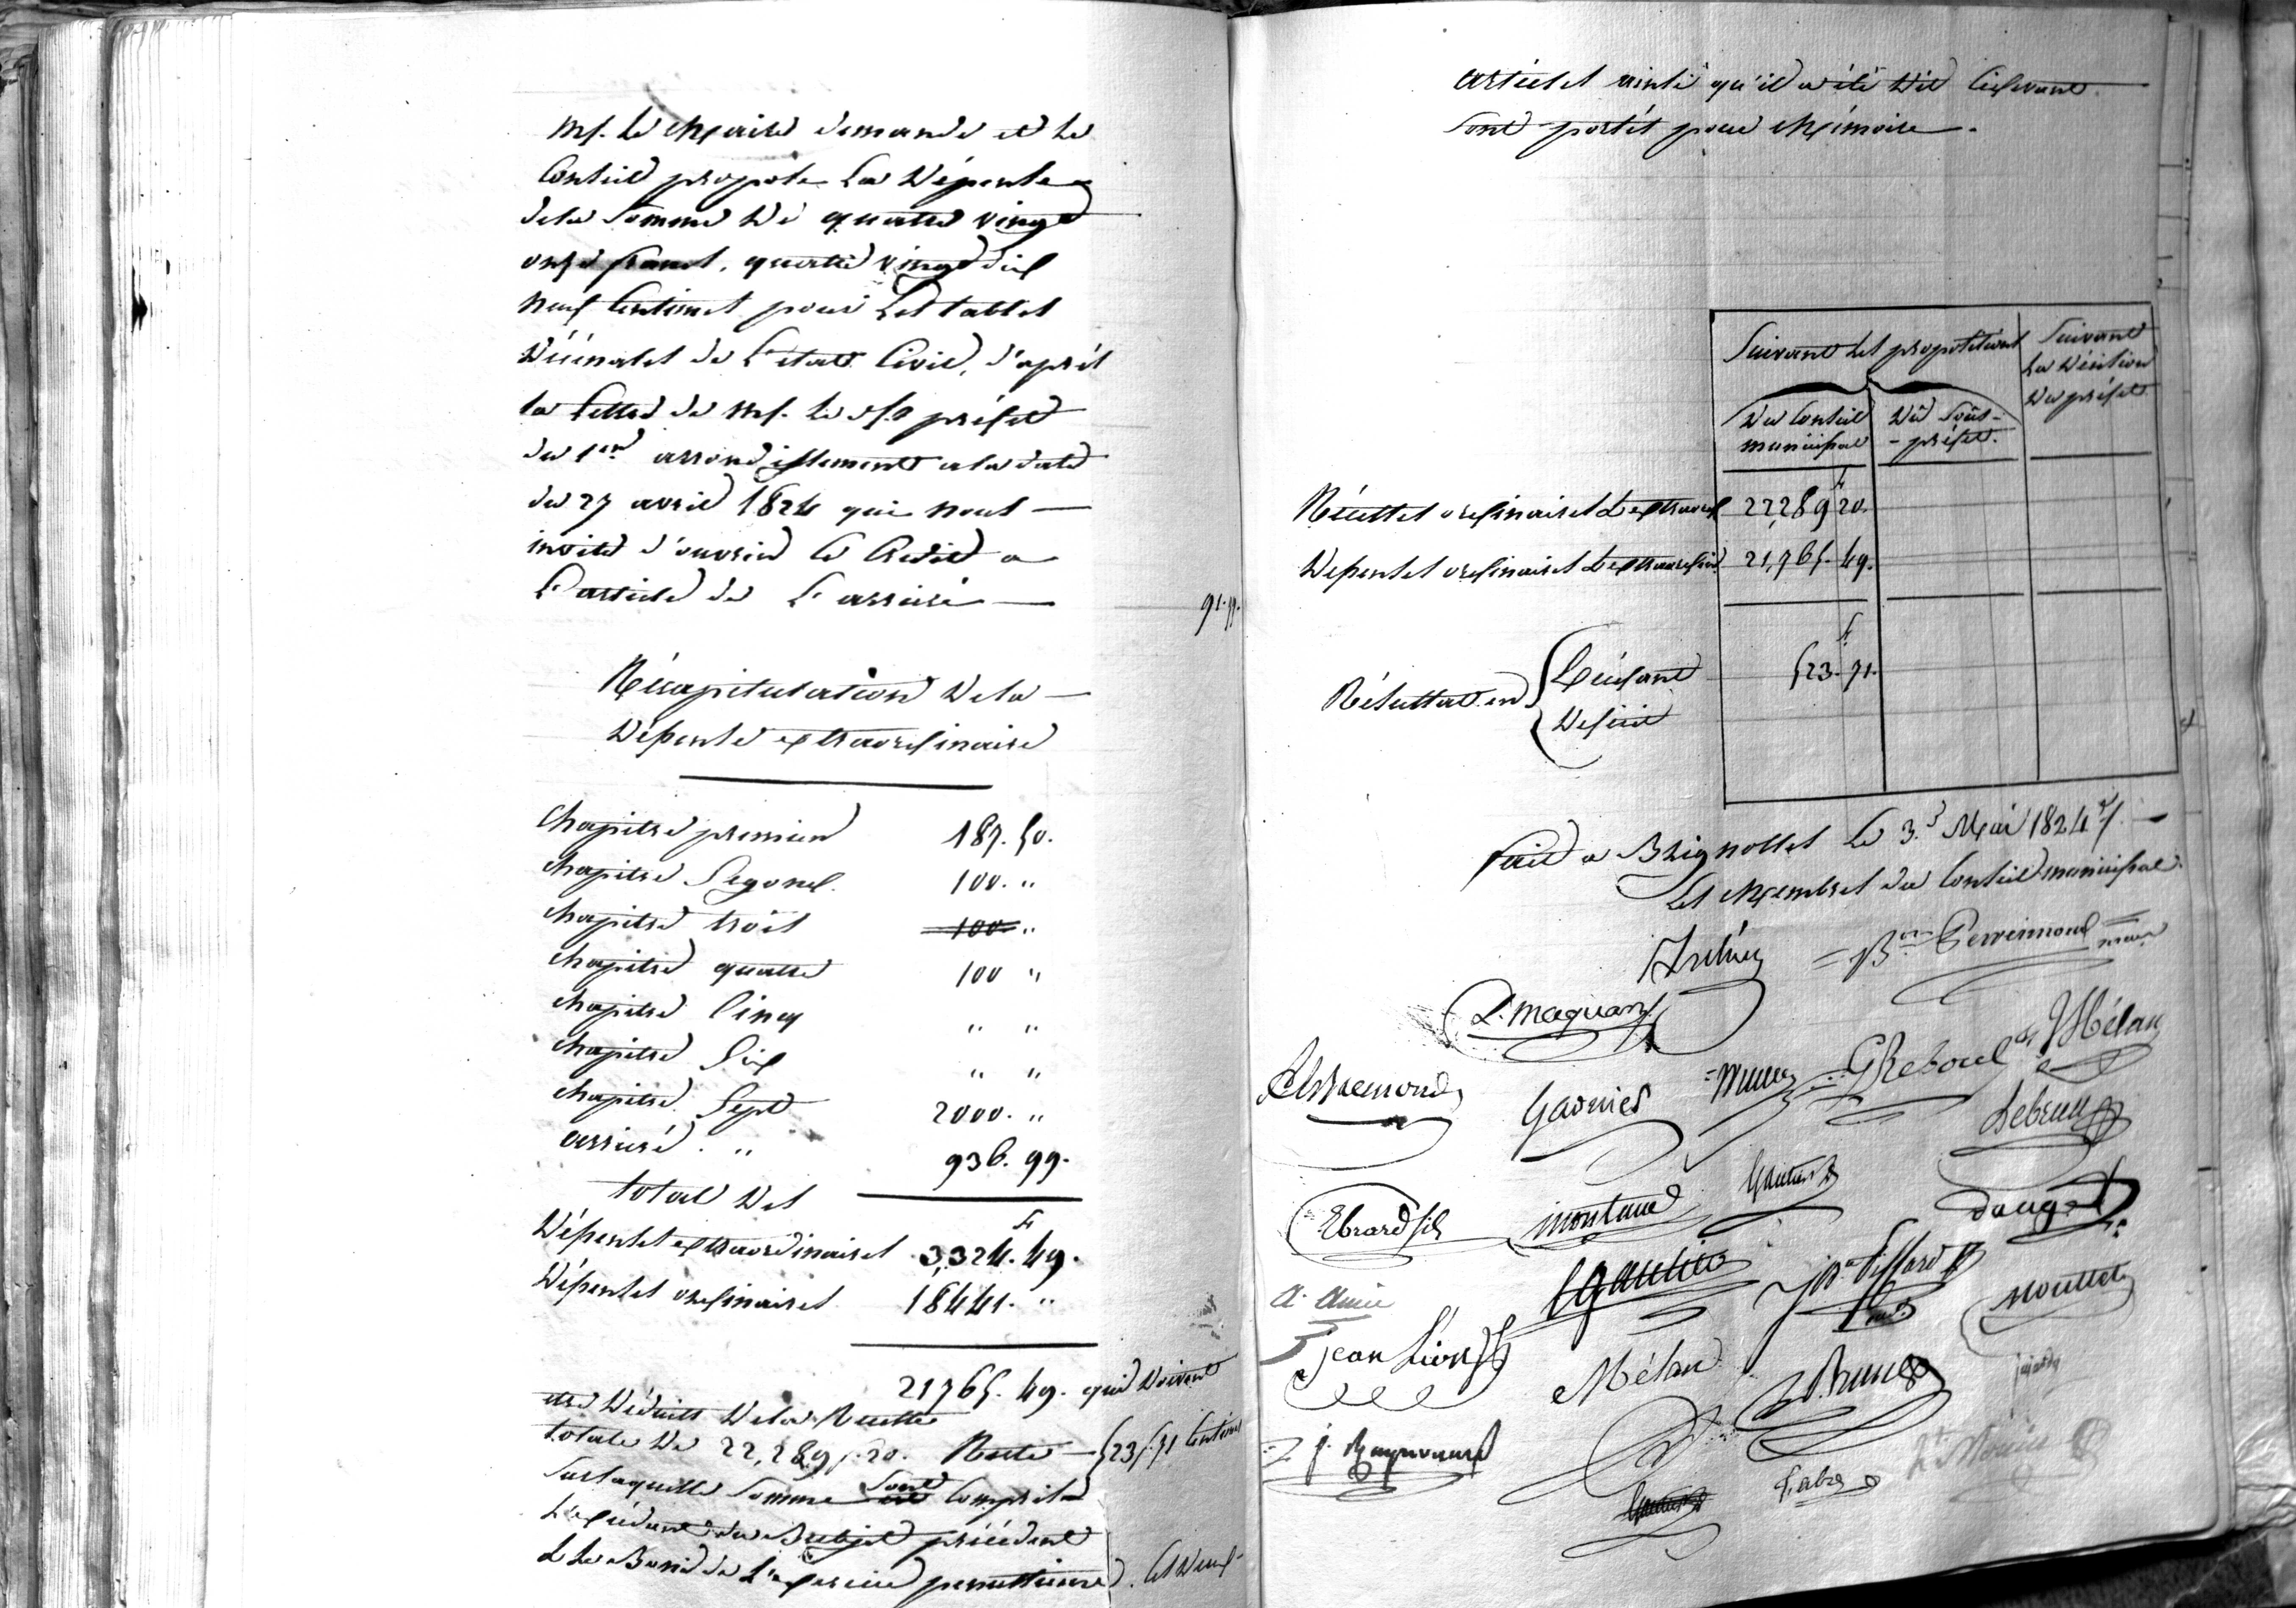 Mr. Le Maire demande et Le
Conseil propose La Dépense
dela Somme De quatre vingt
onze francs, quatre vingt dix
neuf Centimes pour Les tables
Décénales de L'état Civil, d'après
la Lettre de Mr. Le s/s préfet
du 1er arrondissement a la date
du 27 avril 1824 qui nous
invite d'ouvrir Ce Crédit a
L'article de L'arriéré
91.99.
Récapitulation Dela
Dépense extraordinaire
Chapitre premier 187.50.
Chapitre Segond. 100. "
Chapitre trois 100 "
Chapitre quatre 100 "
Chapitre Cinq " "
Chapitre Six " "
Chapitre Sept 2000. "
arriéré. " 936.99.
total Des
Dépenses extraordinaires 3,324.49.
Dépenses ordinaires 18441. "
21765.49. qui Doivent
etre Déduits Dela Recette
totale De 22,289f.20. Reste 523f.71 Centimes
Surlaquelle Somme Sont Compris
L'excédant du Budjet précédent
& Le Boni de L'exercice . Ces Deux
articles ainsi qu'il a été Dit Cidevant
Sont portés pour Mémoire.
Suivant Les propositions
Suivant
La Décision
Du préfet
Du Conseil
municipal
Du Sous-
-préfet.
Recettes ordinaires & extraord 22,289 20.
Dépenses ordinaires & extraordin. 21,765.49.
Résultat en
Excédant 523.71.
Deficit
fait a Brignolles Le 3. Mai 1824
Les Membres du Conseil municipal.
Bon Perreimond maire
L. Maquan
G Reboul
Mélan
Garnier
Lebrun
Ebrard fils
montaud
Gautier
A. Amic
Jean Lion
Mélan
Brun
Mouttet
Fabre